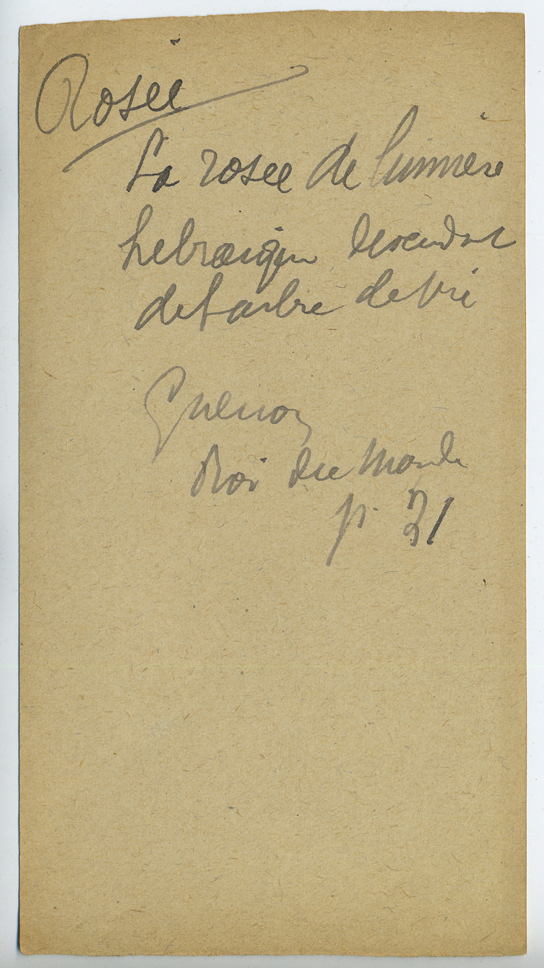 Rosée
La rosée de lumière
hebraïque descendant
de l'arbre de vie
Guenon
Roi du Monde
p. 21